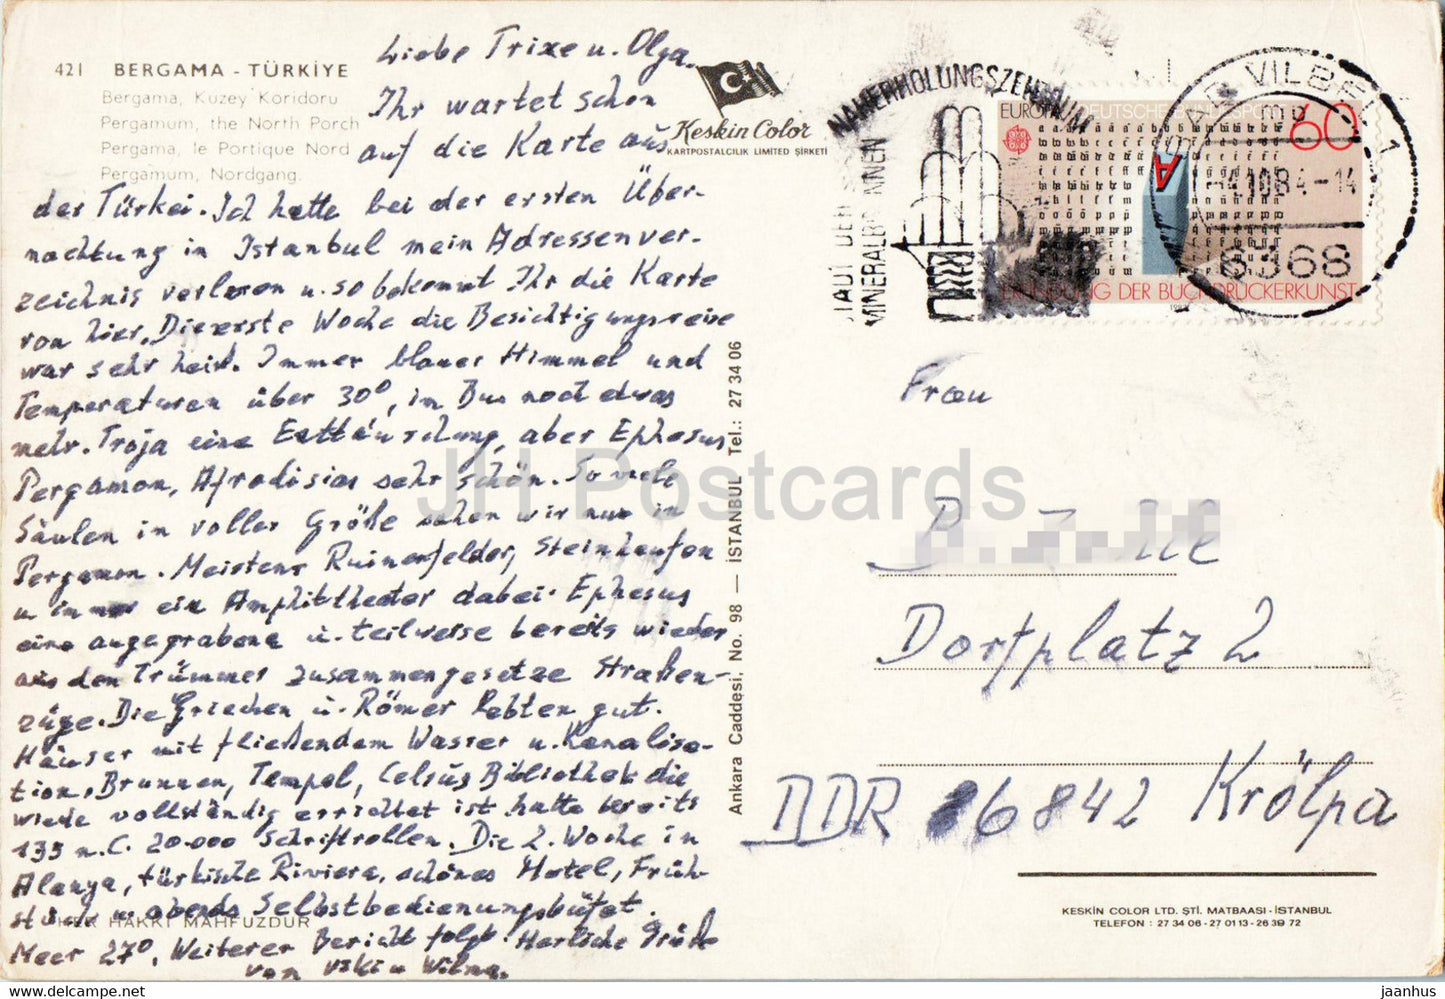 421 BERGAMA - TÜRKİYE
Bergama, Kuzey Koridoru
Pergamum, the North Porch
Pergama, le Portique Nord
Pergamum, Nordgang.
Keskin Color
KARTPOSTALCILIK LIMITED ŞİRKETİ
Liebe Trixe u. Olga.
Ihr wartet schon
auf die Karte aus
der Türkei. Ich hatte bei der ersten Über-
nachtung in Istanbul mein Adressenver-
zeichnis verloren u. so bekommt Ihr die Karte
von hier. Die erste Woche die Besichtigungsreise
war sehr heiß. Immer blauer Himmel und
Temperaturen über 30°, im Bus noch etwas
mehr. Troja eine Enttäuschung, aber Ephesus
Pergamon, Afrodisias sehr schön. So viele
Säulen in voller Größe sahen wir nur in
Pergamon. Meistens Ruinenfelder, Steinhaufen
u immer ein Amphitheater dabei. Ephesus
eine ausgegrabene u. teilweise bereits wieder
aus den Trümmer zusammengesetze Straßen-
züge. Die Griechen u. Römer lebten gut.
Häuser mit fließendem Wasser u. Kanalisa-
tion, Brunnen, Tempel, Celsus Bibliothek die
wieder vollständig errichtet ist hatte bereits
135 n.C. 20.000 Schriftrollen. Die 2. Woche in
Alanya, türkische Riviera, schönes Hotel, Früh-
stück u. abends Selbstbedienungsbüfet.
HAKKI MAHFUZDUR
Meer 27°. Weiterer Bericht folgt. Herzliche Grüße
von u Wilma.
Ankara Caddesi, No. 98 — İSTANBUL Tel.: 27 34 06
NAHERHOLUNGSZENTRUM
STADT DER
MINERALBRUNNEN
BAD VILBEL 1
6368
EUROPA DEUTSCHE BUNDESPOST 60
ERFINDUNG DER BUCHDRUCKERKUNST
Frau
Dorfplatz 2
DDR 6842 Krölpa
KESKIN COLOR LTD. ŞTİ. MATBAASI - İSTANBUL
TELEFON : 27 34 06 - 27 01 13 - 26 39 72
JH Postcards
www.delcampe.net
jaanhus